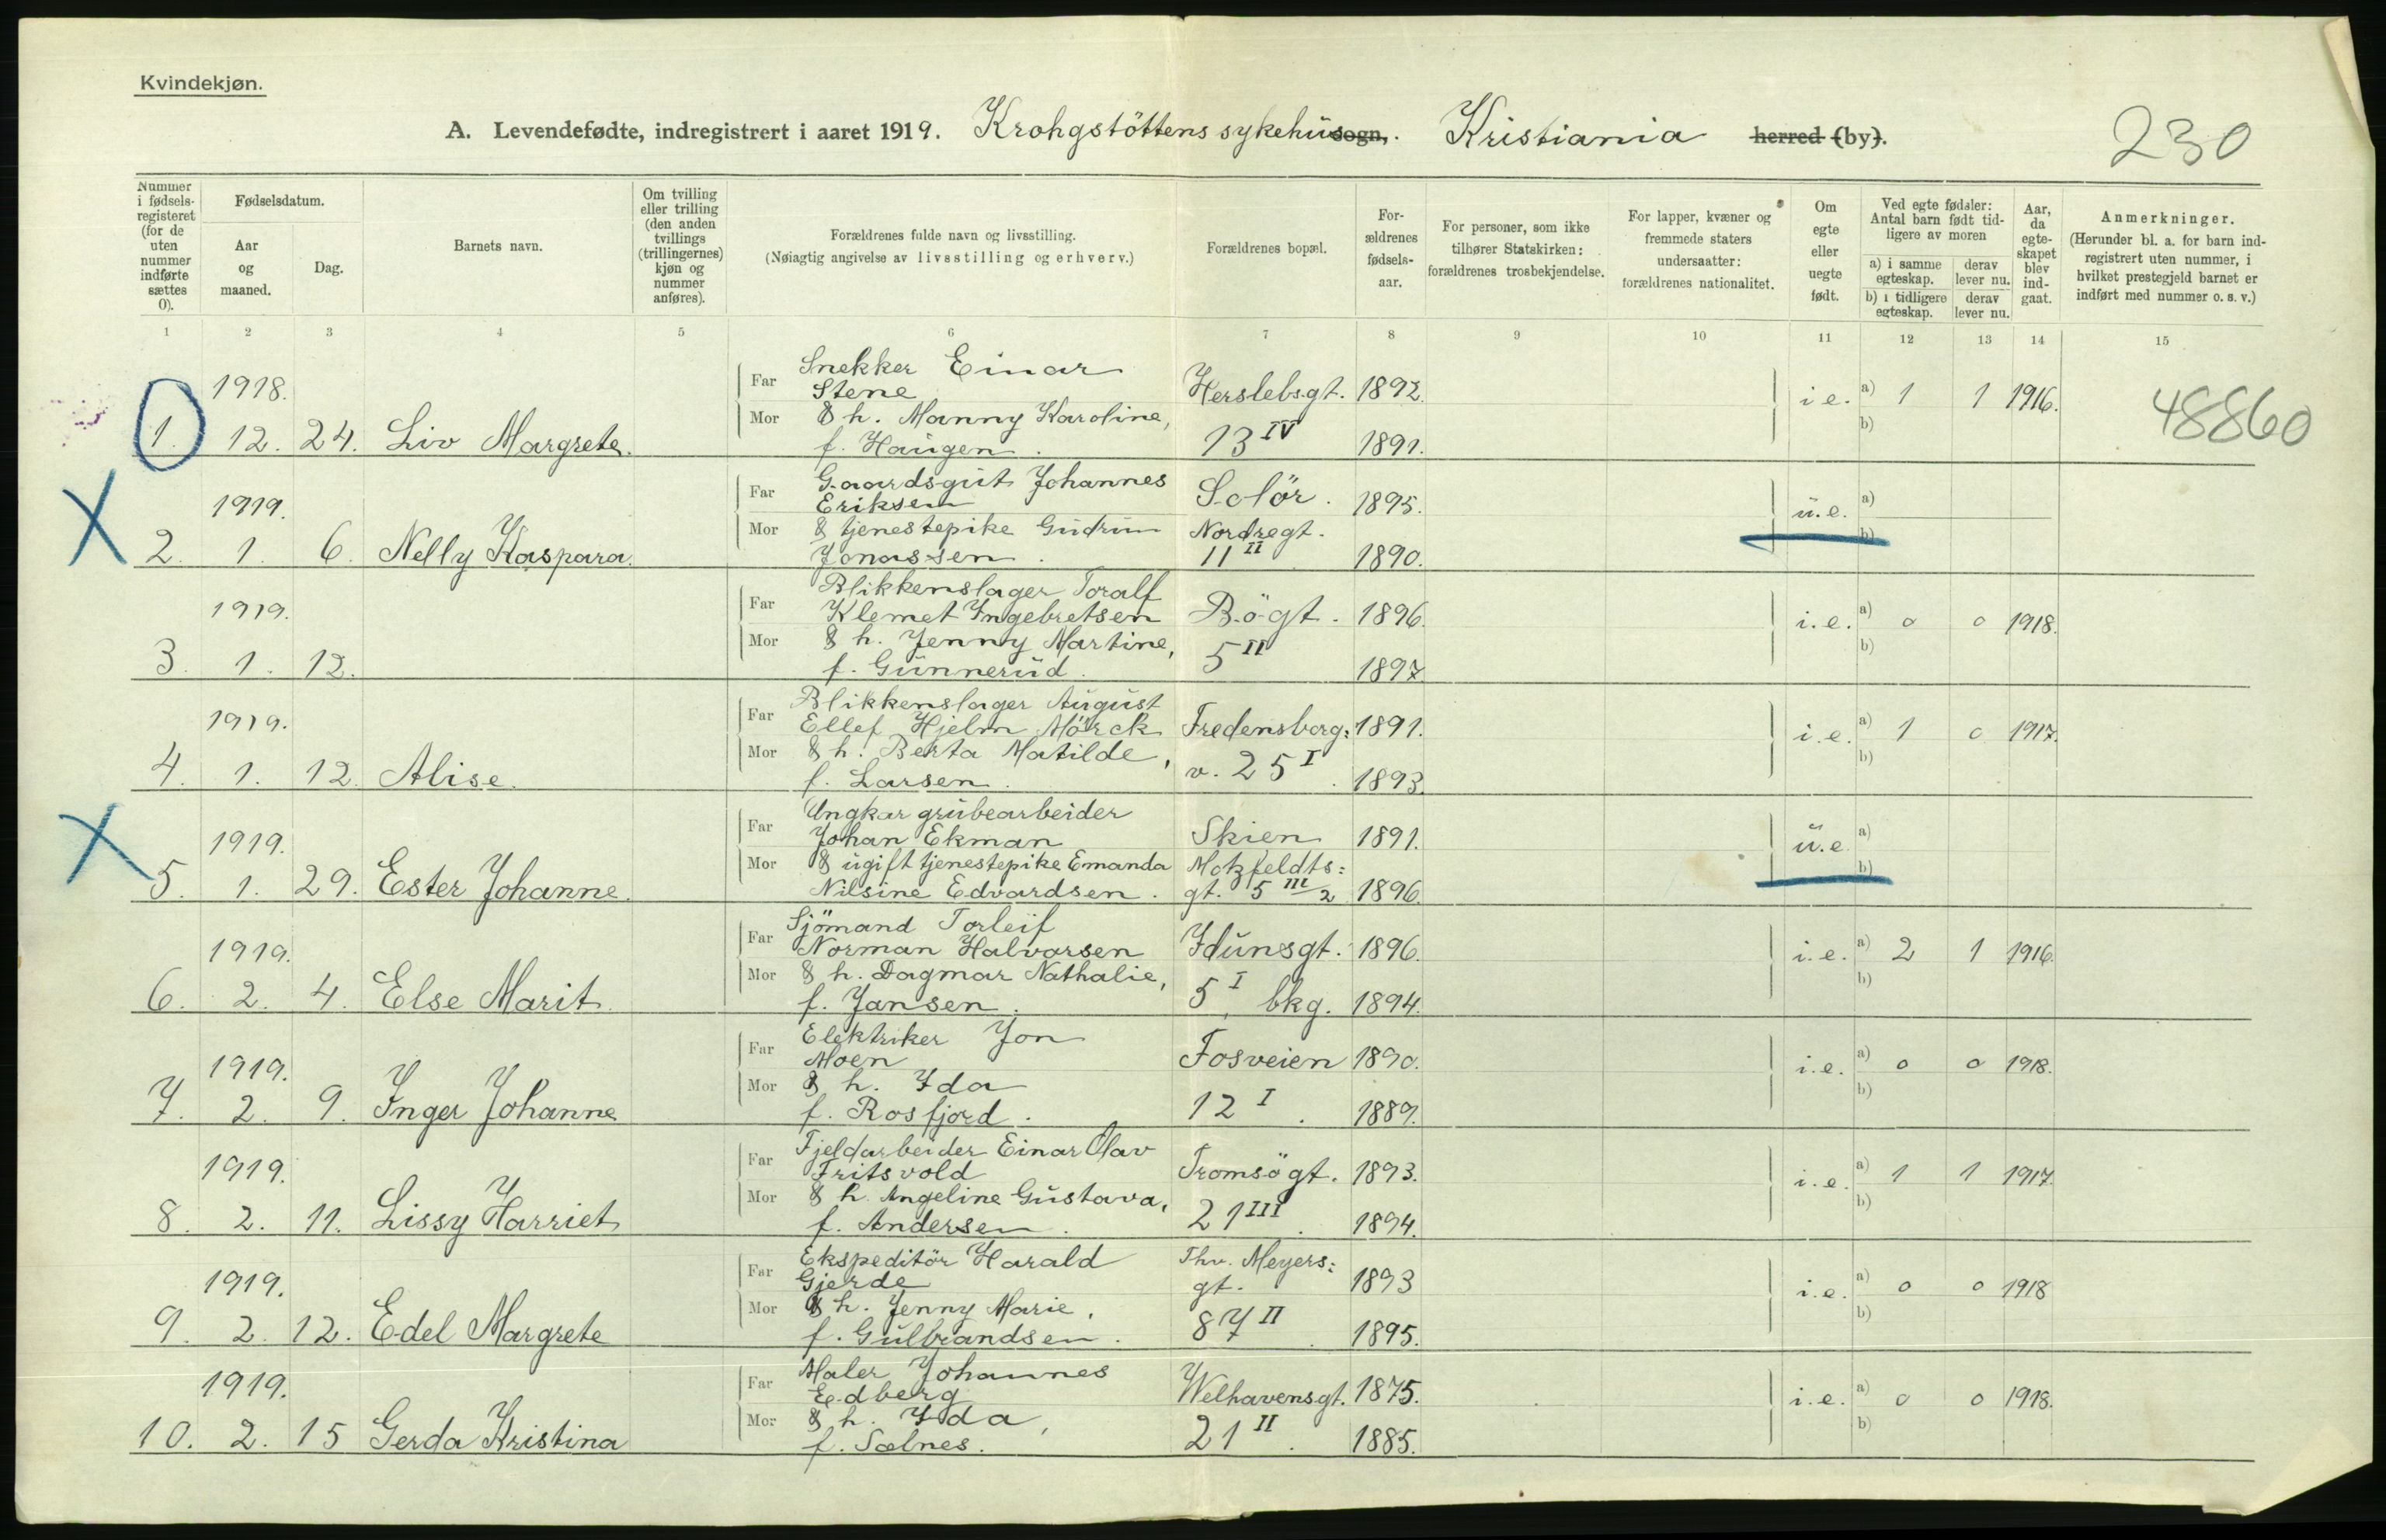 Kvindekjøn.
A. Levendefødte, indregistrert i aaret 1919. Krohgstöttens sykehus sogn, Kristiania herred (by).
230
Nummer i fødsels-registeret (for de uten nummer indførte sættes 0).
Fødselsdatum.
Aar og maaned.
Dag.
Barnets navn.
Om tvilling eller trilling (den anden tvillings (trillingernes) kjøn og nummer anføres).
Forældrenes fulde navn og livsstilling.
(Nøiagtig angivelse av livsstilling og erhverv.)
Forældrenes bopæl.
For-ældrenes fødsels-aar.
For personer, som ikke tilhører Statskirken: forældrenes trosbekjendelse.
For lapper, kvæner og fremmede staters undersaatter: forældrenes nationalitet.
Om egte eller uegte født.
Ved egte fødsler: Antal barn født tid-ligere av moren
a) i samme egteskap. derav lever nu.
b) i tidligere egteskap. derav lever nu.
Aar, da egte-skapet blev ind-gaat.
Anmerkninger.
(Herunder bl. a. for barn ind-registrert uten nummer, i hvilket prestegjeld barnet er indført med nummer o. s. v.)
1 2 3 4 5 6 7 8 9 10 11 12 13 14 15
1918. Far Snekker Einar
Stene Herslebsgt. 1892. i e. a) 1 1 1916. 48860
Mor & h. Manny Karoline, b)
1. 12. 24. Liv Margrete. f. Haugen. 13 IV 1891.
X Far Gaardsgut Johannes
1919. Eriksen Solör. 1895. u.e. a)
Mor & tjenestepike Gudrun Nordregt. b)
2. 1. 6. Nelly Kaspara. Jonassen. 11 II 1890.
Far Blikkenslager Toralf
1919. Klemet Ingebretsen Bögt. 1896. i.e. a) 0 0 1918.
Mor & h. Jenny Martine, b)
3. 1. 12. f. Gunnerud. 5 II 1897
Far Blikkenslager August
1919. Ellef Hjelm Mörck Fredensborg: 1891. i.e. a) 1 0 1917.
Mor & h. Berta Matilde, b)
4. 1. 12. Alise. f. Larsen. v. 25 I. 1893.
X Far Ungkar grubearbeider
1919. Johan Ekman Skien 1891. u.e a)
Mor & ugift tjenestepike Emanda Motzfeldts: b)
5. 1. 29. Ester Johanne. Nilsine Edvardsen. gt. 5 III/2 1896.
Far Sjömand Torleif
1919. Norman Halvorsen Idunsgt. 1896. i.e. a) 2 1 1916.
Mor & h. Dagmar Nathalie, b)
6. 2. 4. Else Marit. f. Jansen. 5 I, bkg. 1894.
Far Elektriker Jon
1919. Moen Fosveien 1890. i.e. a) 0 0 1918.
Mor & h. Ida b)
7. 2. 9. Inger Johanne f. Rosfjord. 12 I. 1889.
Far Fjeldarbeider Einar Olav
1919. Fritsvold Tromsögt. 1893. i.e. a) 1 1 1917.
Mor & h. Angeline Gustava, b)
8. 2. 11. Lissy Harriet f. Andersen. 21 III. 1894.
Far Ekspeditör Harald Thv. Meyers:
1919. Gjerde gt. 1893 i.e. a) 0 0 1918
Mor & h. Jenny Marie, b)
9. 2. 12. Edel Margrete f. Gulbrandsen. 87 II. 1895.
Far Maler Johannes
1919. Edberg Welhavensgt. 1875. i.e. a) 0 0 1918.
Mor & h. Ida, b)
10. 2. 15 Gerda Kristina f. Sælnes. 21 II. 1885.